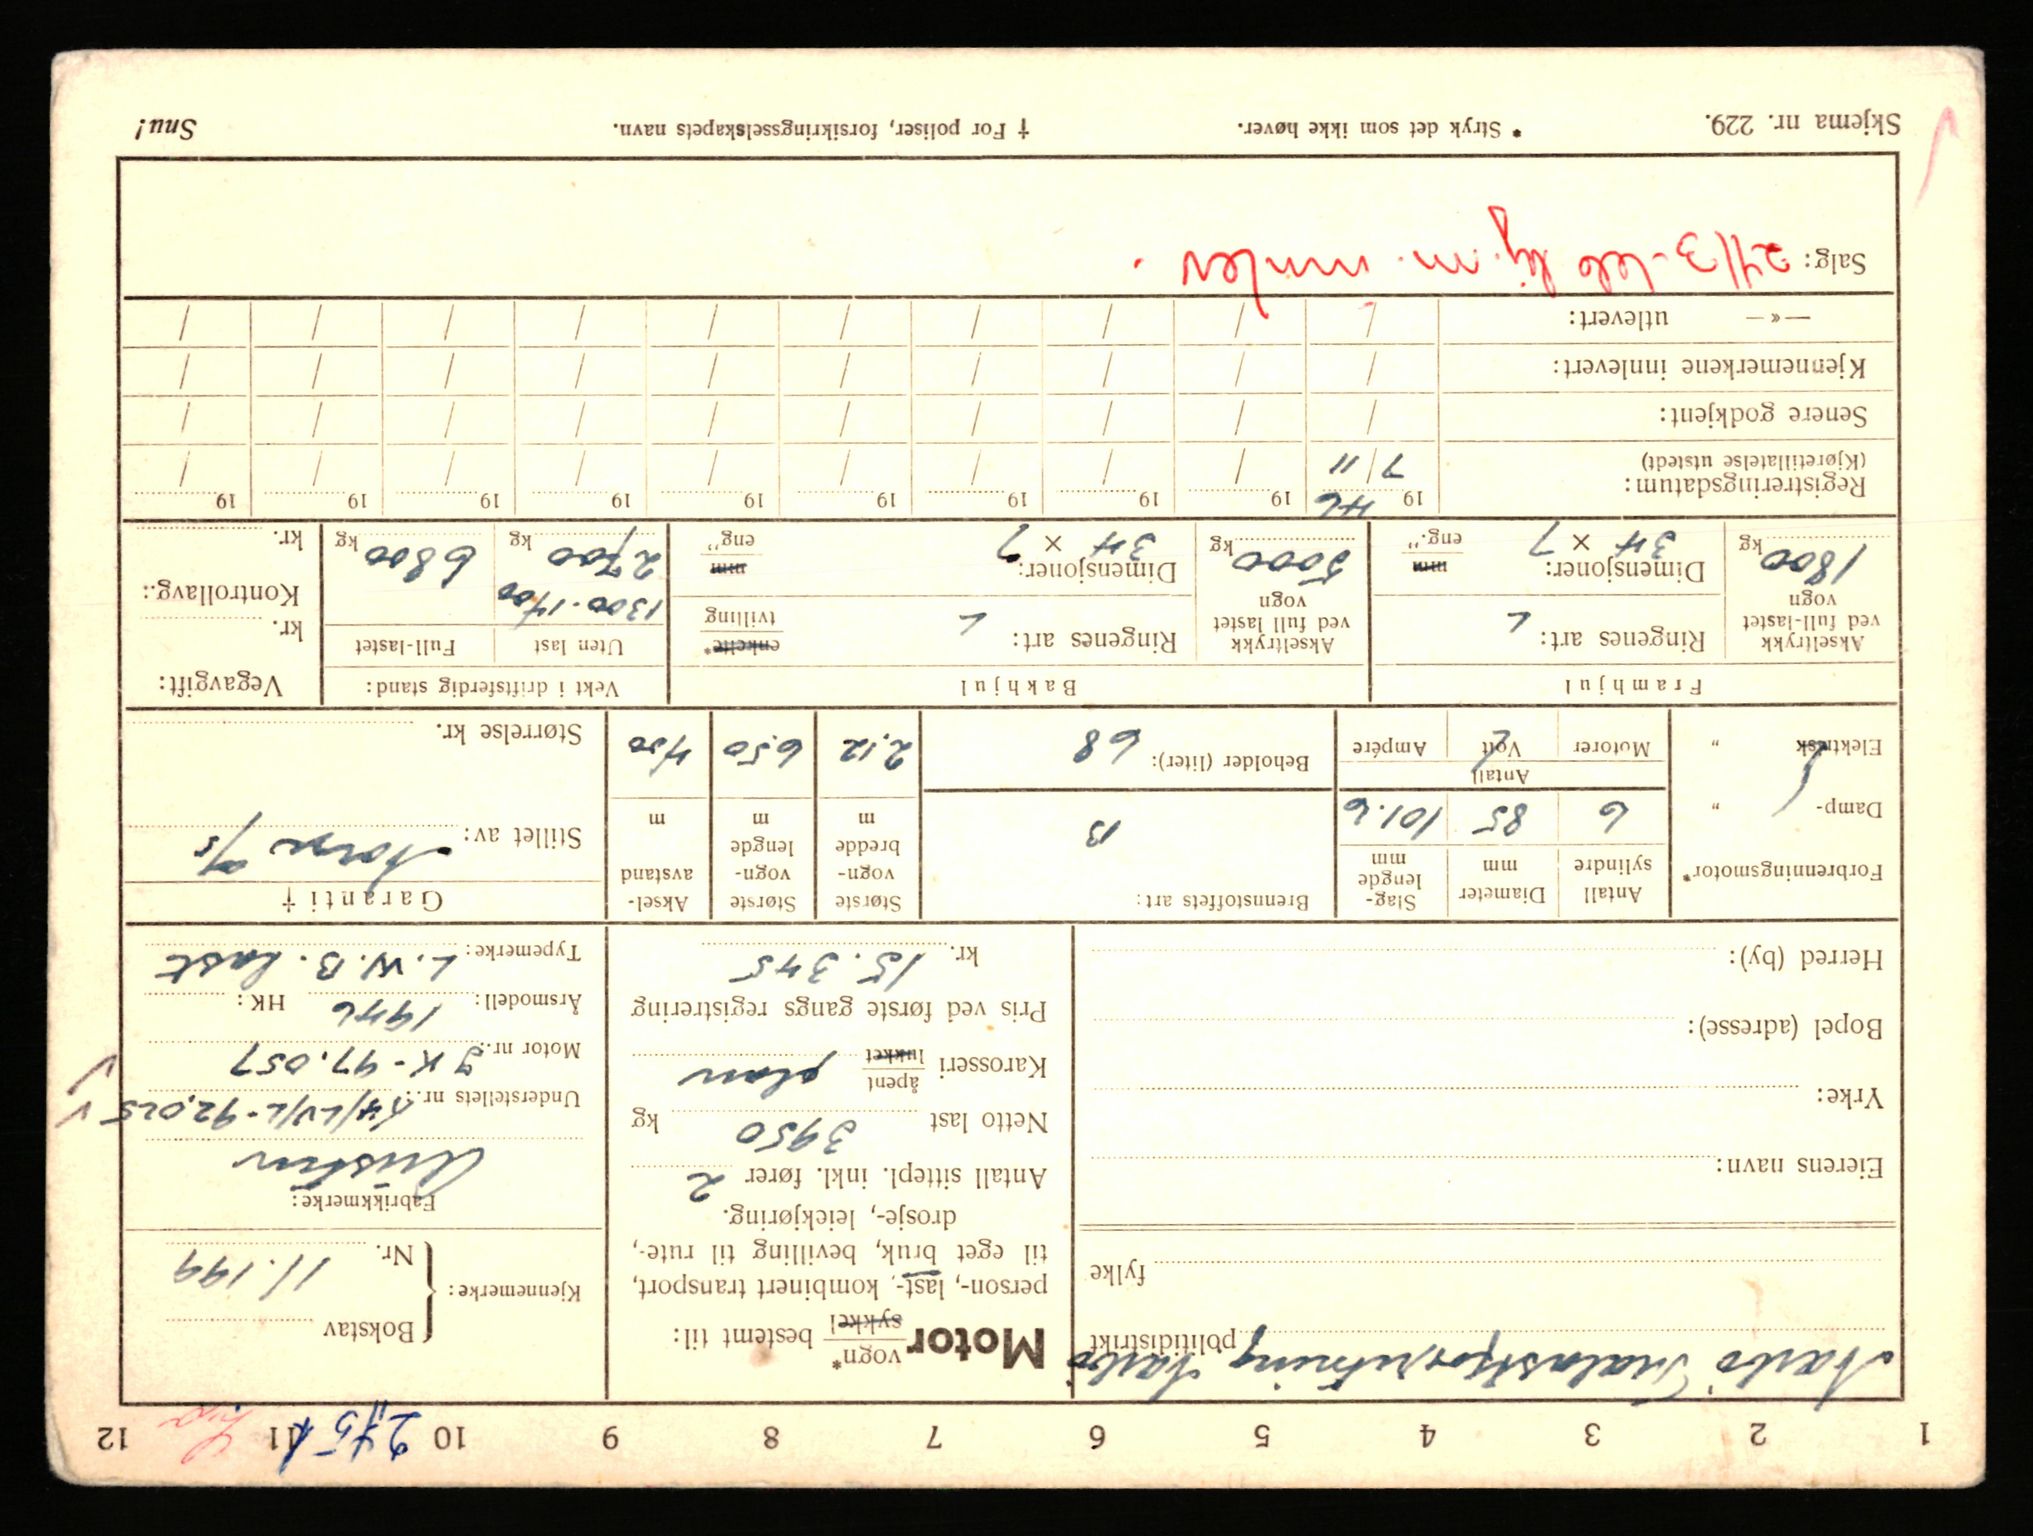 1 2 3 4 5 6 7 8 9 10 11 12
275 k
politidistrikt
fylke
Eierens navn:
Yrke:
Bopel (adresse):
Herred (by):
Motor vogn* sykkel bestemt til:
person-, last-, kombinert transport,
til eget bruk, bevilling til rute-,
drosje-, leiekjøring.
Antall sittepl. inkl. fører 2
Netto last 3950 kg
Karosseri åpent lukket plan
Pris ved første gangs registrering
kr. 15.345
Kjennemerke: { Bokstav
Nr. 11.199
Fabrikkmerke:
Austin
Understellets nr.: K4/LV/L-92,025 V
Motor nr.: 3K-97.057 V
Årsmodell: 1946 HK:
Typemerke: L.W.B. last
Forbrenningsmotor*
Damp- "
Elektrisk "
Antall sylindre 6
Diameter mm 85
Slag-lengde mm 101.6
Antall
Motorer Volt Ampére
Brennstoffets art: B
Beholder (liter): 68
Største vogn-bredde m 2,12
Største vogn-lengde m 6,50
Aksel-avstand m 4,00
Garanti †
Stillet av: Norge A/S
Størrelse kr.
Framhjul
Akseltrykk ved full-lastet vogn 1800 kg
Ringenes art: L
Dimensjoner: 34 × 7 mm eng.".
Bakhjul
Akseltrykk ved full lastet vogn 5000 kg
Ringenes art: L enkelte* tvilling
Dimensjoner: 34 × 7 mm eng"
Vekt i driftsferdig stand:
Uten last Full-lastet
1300.1400
2700 kg 6800 kg
Vegavgift:
kr.
Kontrollavg.:
kr.
Registreringsdatum: 1946 19 19 19 19 19 19 19 19 19
(Kjøretillatelse utstedt) 7/11 / / / / / / / / /
Senere godkjent: / / / / / / / / / /
Kjennemerkene innlevert: / / / / / / / / / /
—«— utlevert: / / / / / / / / / /
Salg: 24/3-66 kj.m. innlev.
Skjema nr. 229. * Stryk det som ikke høver. † For poliser, forsikringsselskapets navn. Snu!